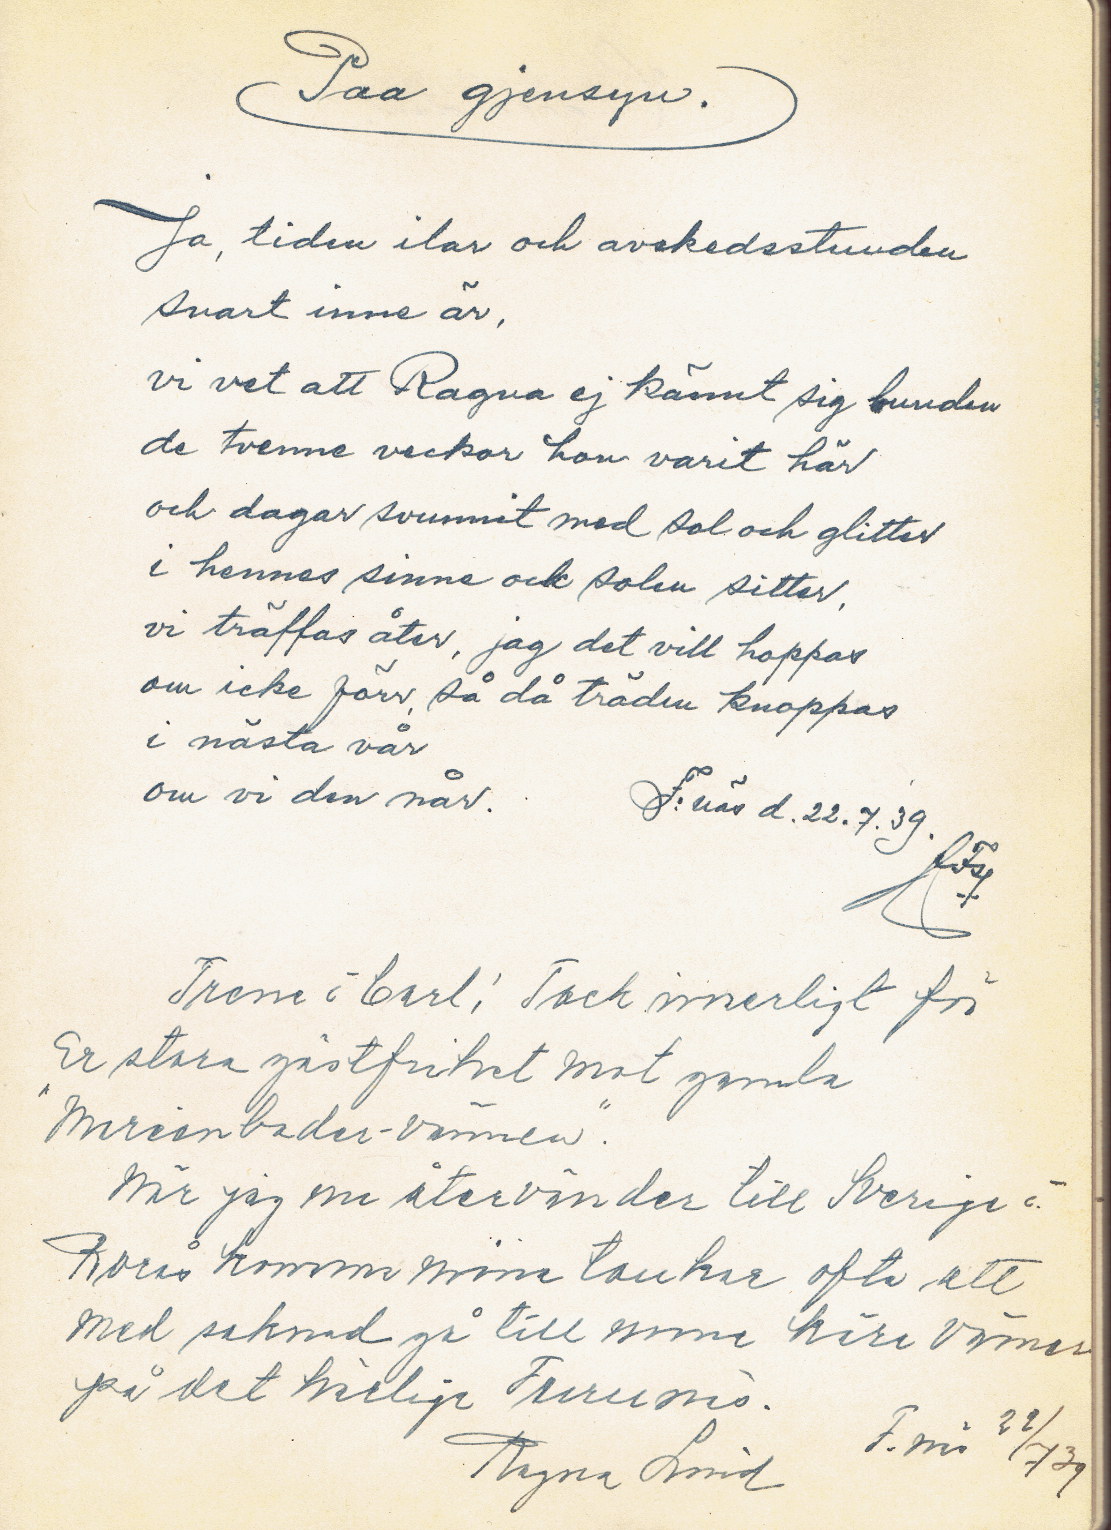 Paa gjensyn.
Ja, tiden ilar och avskedsstunden
snart inne är,
vi vet att Ragna ej kännt sig bunden
de tvenne veckor hon varit här
och dagar svunnit med sol och glitter
i hennes sinne ock solen sitter,
vi träffas åter, jag det vill hoppas
om icke förr, så då träden knoppas
i nästa vår
om vi den når.
F:näs d. 22.7.39.
Irene o Carl! Tack innerligt för
Er stora gästfrihet mot gamla
"Marienbader-vännen".
När jag nu återvänder till Sverige o.
Borås komma mina tankar ofta att
med saknad gå till mina kära vänner
på det härliga Furunäs.
F.näs 22/7 39
Ragna Lind